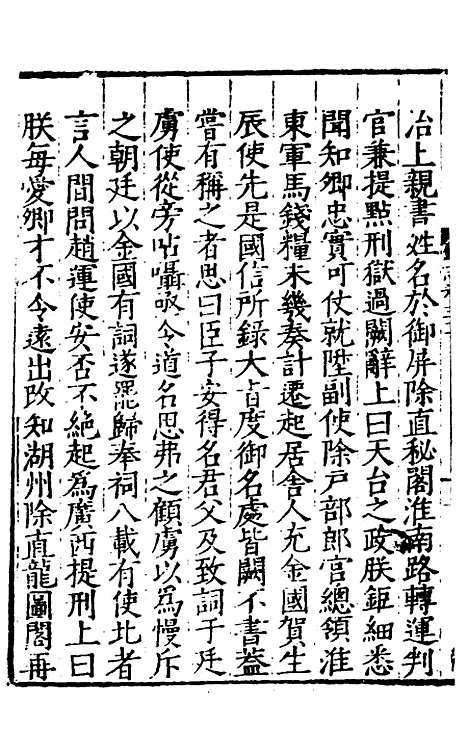 冶上親書姓名於御屏除直秘閣淮南路轉運判
官兼提點刑獄過闕辭上曰天台之政朕鉅細悉
聞知卿忠實可仗就陞副使除戸部郎官總領淮
東軍馬錢糧未幾奏計遷起居舎人充金國賀生
辰使先是國信所錄大旨度御名處皆闕不書蓋
嘗有稱之者思曰臣子安得名君父及致詞于廷
虜使從旁呫囁嗾令道名思弗之顧虜以爲慢斥
之朝廷以金國有詞遂罷歸奉祠八載有使北者
言人間問趙運使安否不絶起爲廣西提刑上曰
朕每愛卿才不令遠出改知湖州除直龍圖閣再